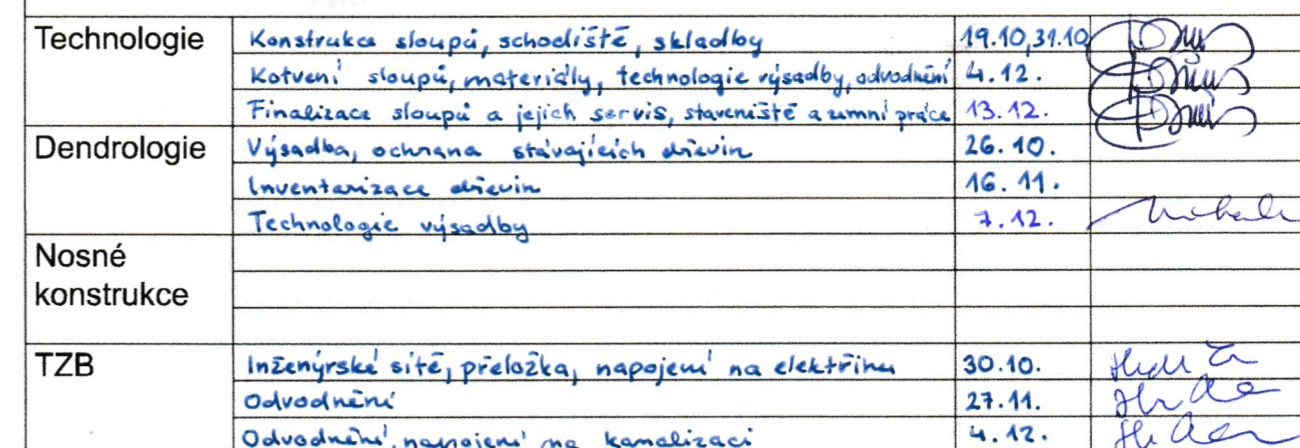 Technologie Konstrukce sloupů, schodiště, skladby 19.10,31.10
Kotvení sloupů, materiály, technologie výsadby, odvodnění 4.12.
Finalizace sloupů a jejich servis, staveniště a zemní práce 13.12.
Dendrologie Výsadba, ochrana stávajících dřevin 26.10.
Inventarizace dřevin 16.11.
Technologie výsadby 7.12.
Nosné
konstrukce
TZB Inženýrské sítě, přeložka, napojení na elektřinu 30.10.
Odvodnění 27.11.
Odvodnění, napojení na kanalizaci 4.12.